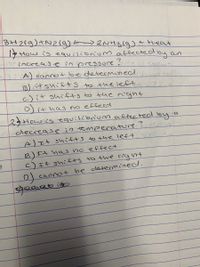 3H2(g)+N2(g) ⟷ 2NH3(g) + heat
1) How is equilibrium affected by an
increase in pressure?
A) cannot be determined
B) it shifts to the left
C) it shifts to the right
D) it has no effect
2) How is equilibrium affected by a
decrease in temperature?
A) It shifts to the left
B) It has no effect
C) it shifts to the right
D) cannot be determined